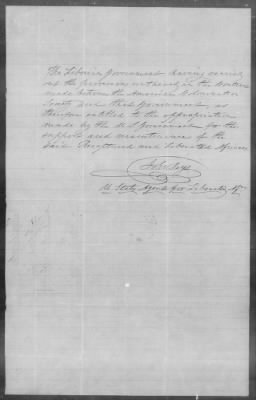 The Liberia Government having carried
out the provisions entered in the Contract
made between the American Colonization
Society and that Government, is
therefore entitled to the appropriation
made by the U S Government for the
support and maintenance of the
said Recaptured and Liberated Africans
John Seys
U States Agent for Liberated Af